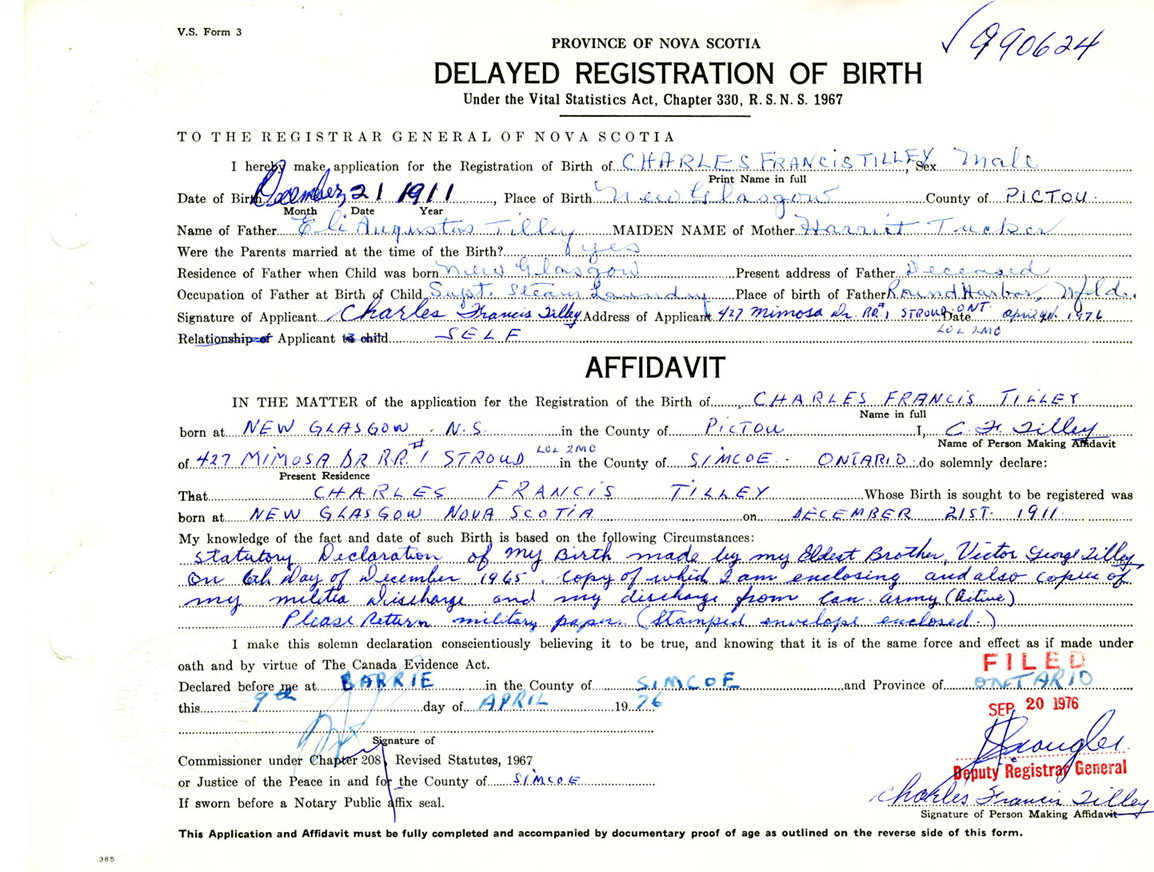 V.S. Form 3
990624
PROVINCE OF NOVA SCOTIA
DELAYED REGISTRATION OF BIRTH
Under the Vital Statistics Act, Chapter 330, R.S.N.S. 1967
TO THE REGISTRAR GENERAL OF NOVA SCOTIA
I hereby make application for the Registration of Birth of CHARLES FRANCIS TILLEY, Sex Male
Print Name in full
Date of Birth December 21 1911, Place of Birth New Glasgow County of PICTOU.
Month Date Year
Name of Father Eli Augustas Tilley MAIDEN NAME of Mother Harriet Tucker
Were the Parents married at the time of the Birth? yes
Residence of Father when Child was born New Glasgow Present address of Father Deceased
Occupation of Father at Birth of Child Supt. Steam Laundry Place of birth of Father Round Harbor, Nfld.
Signature of Applicant Charles Francis Tilley Address of Applicant 427 Mimosa Dr RR1 STROUD ONT Date April 1976
L0L 2M0
Relationship of Applicant to child SELF
AFFIDAVIT
IN THE MATTER of the application for the Registration of the Birth of CHARLES FRANCIS TILLEY
Name in full
born at NEW GLASGOW . N.S. in the County of PICTOU I, C. F. Tilley
Name of Person Making Affidavit
of 427 MIMOSA DR RR #1 STROUD L0L 2M0 in the County of SIMCOE - ONTARIO do solemnly declare:
Present Residence
That CHARLES FRANCIS TILLEY Whose Birth is sought to be registered was
born at NEW GLASGOW NOVA SCOTIA on DECEMBER 21ST. 1911
My knowledge of the fact and date of such Birth is based on the following Circumstances:
Statutory Declaration of My Birth made by my Eldest Brother, Victor George Tilley
On 6th Day of December 1965. Copy of which I am enclosing and also copies of
my militia Discharge and my discharge from Can. Army (Active)
Please Return military papers (Stamped envelope enclosed.)
I make this solemn declaration conscientiously believing it to be true, and knowing that it is of the same force and effect as if made under
oath and by virtue of The Canada Evidence Act.
FILED
Declared before me at BARRIE in the County of SIMCOE and Province of ONTARIO
this 9th day of APRIL 1976
SEP 20 1976
Signature of
Commissioner under Chapter 208, Revised Statutes, 1967
Deputy Registrar General
or Justice of the Peace in and for the County of SIMCOE
Charles Francis Tilley
If sworn before a Notary Public affix seal.
Signature of Person Making Affidavit
This Application and Affidavit must be fully completed and accompanied by documentary proof of age as outlined on the reverse side of this form.
365